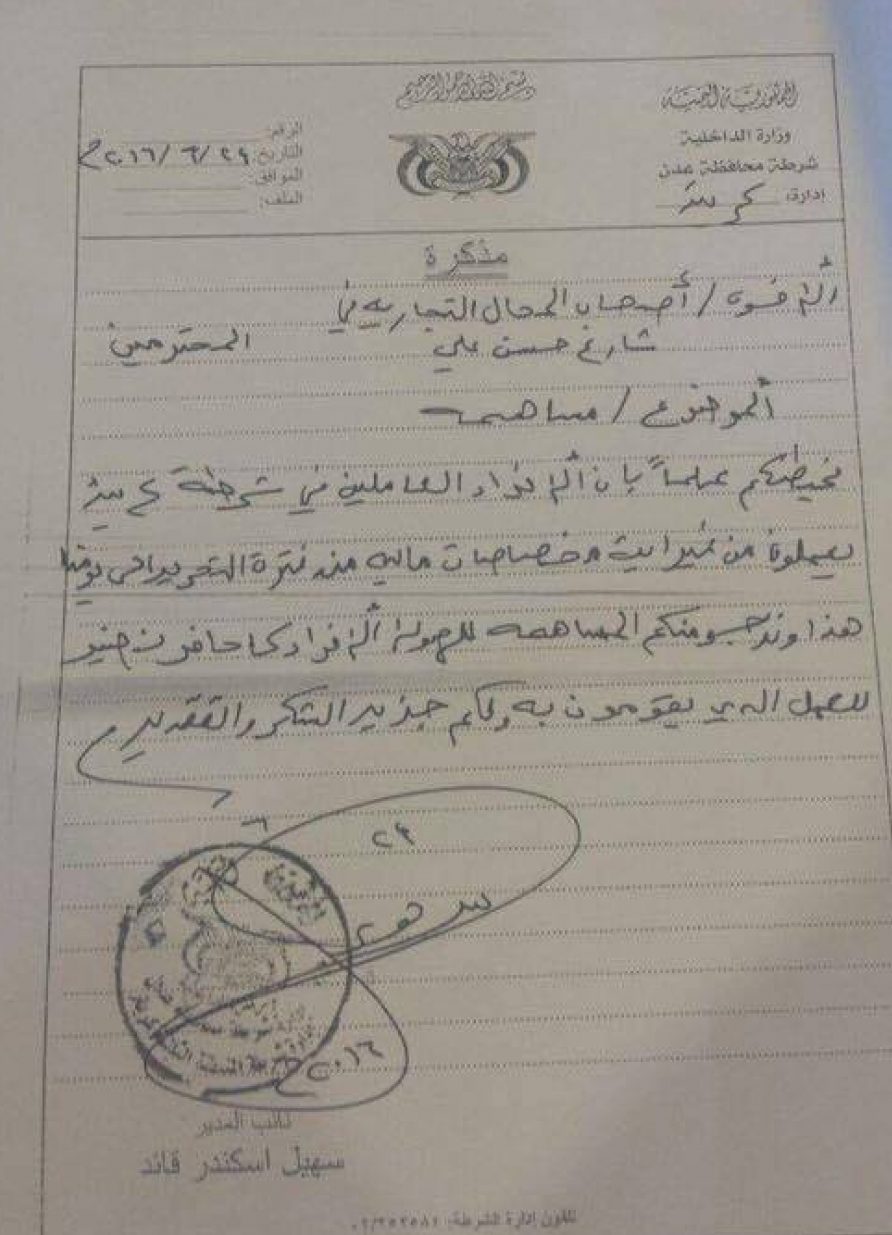 بسم الله الرحمن الرحيم
الجمهورية اليمنية
وزارة الداخلية
شرطة محافظة عدن
إدارة: كريتر
الرقم:
التاريخ: ٢٩/٦/٢٠١٦م
الموافق:
الملف:
مذكرة
الأخوة / أصحاب المحال التجاريه في
شارع حسن علي المحترمين
الموضوع / مساهمه
نحيطكم علماً بان الافراد العاملين في شرطة كريتر
يعملون من غير اية مخصصات ماليه منذ فترة التحرير الى يومنا
هذا ونرجو منكم المساهمه للهولاء الافراد كحافز
للعمل الذي يقومون به ولكم جزير الشكر والتقدير
٢٩
٦
٢٠١٦
نائب المدير
سهيل اسكندر قائد
تلفون إدارة الشرطة: ٠٢/٢٥٢٥٨١